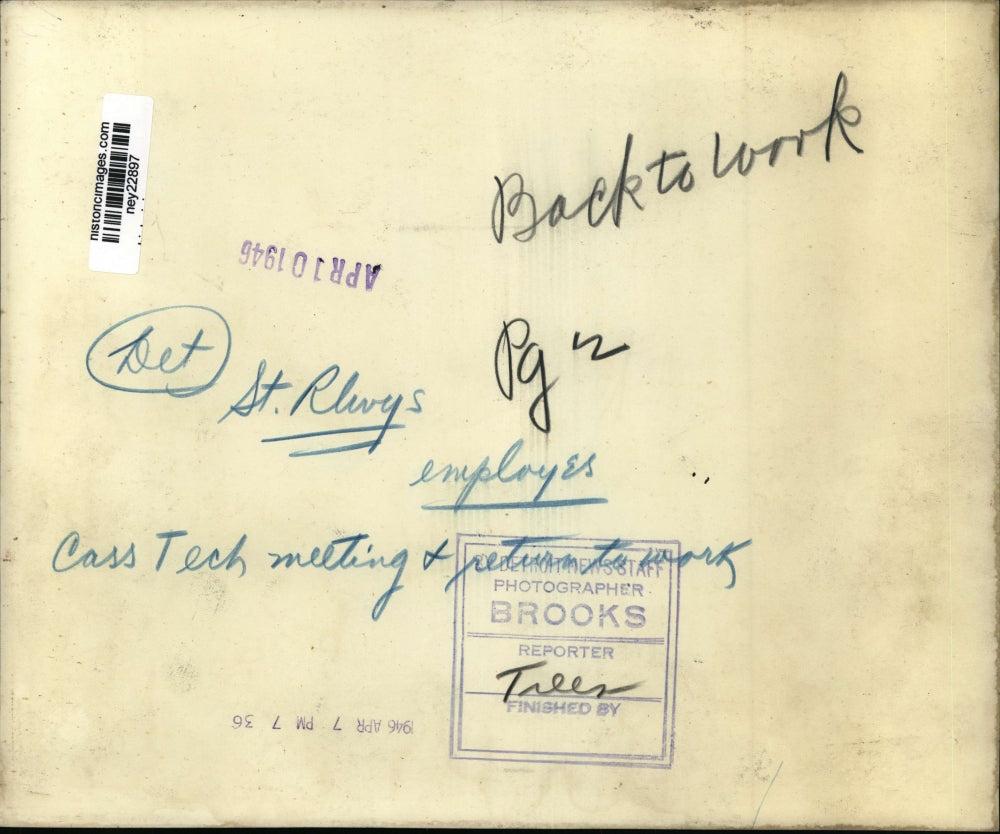 historicimages.com
ney22897
Back to work
APR 10 1946
Det
St. Rlwys
Pg
employes
Cass Tech meeting & return to work
BY DETROIT NEWS STAFF
PHOTOGRAPHER
BROOKS
REPORTER
FINISHED BY
1946 APR 7 PM 7 36